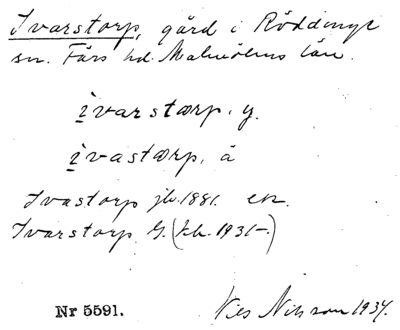 Ivarstorp, gård i Röddinge
sn. Färs hd. Malmöhus län.
ivarstærp, y.
ivastærp, ä
Ivastorp jb. 1881. en.
Ivarstorp G. (kb. 1931-)
Nils Nilsson 1934.
Nr 5591.